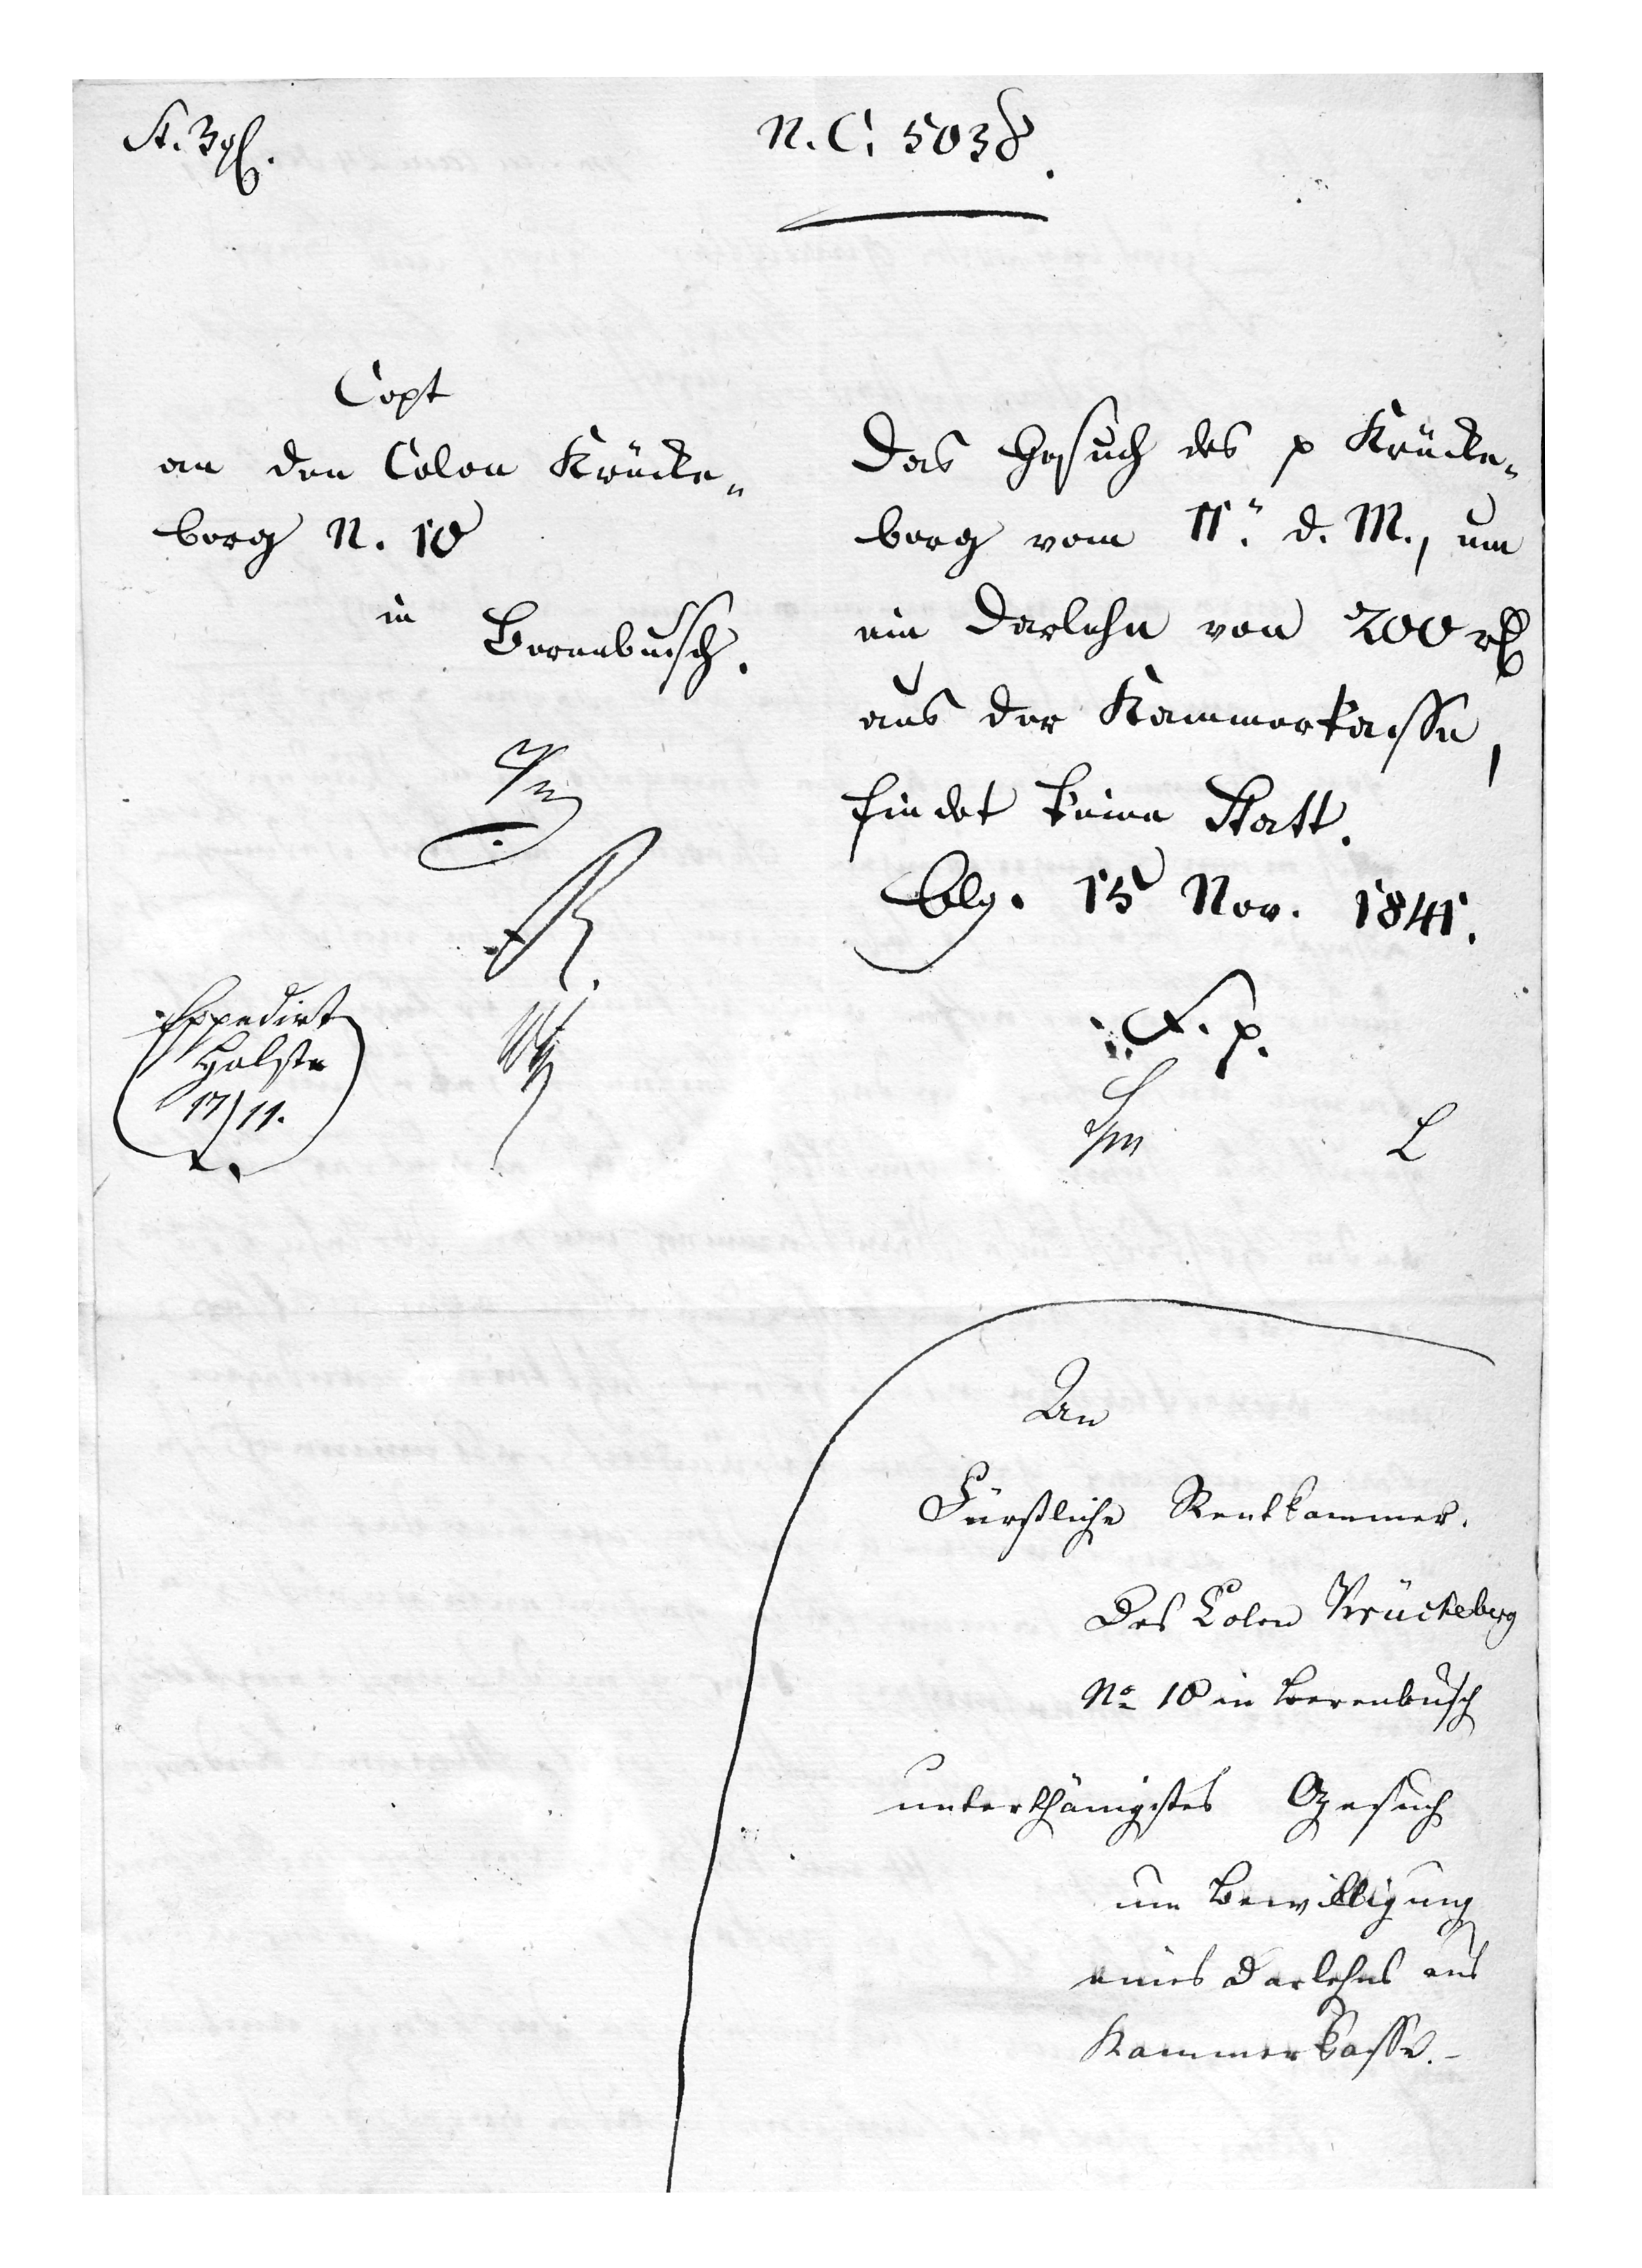 N. C. 5038.
Copt
an den Colon Krücke„
berg N. 10
in Berenbusch.
Das Gesuch des p Krücke„
berg vom 11. d. M., um
ein Darlehn von 200 rℓ
aus der Kammerkasse,
findet keine Statt.
Bbg. 15 Nov. 1841.
F. p.
L
Expedirt
Holste
17/11.
An
Fürstliche Rentkammer.
Des Colon Krückeberg
No 10 in Berenbusch
unterthänigstes Gesuch
um Bewilligung
eines Darlehns aus
Kammerkasse.-